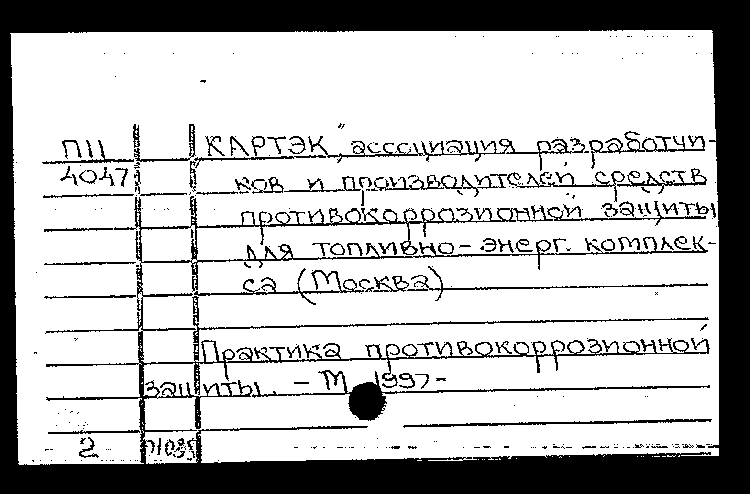 ПII КАРТЭК", ассоциация разработчи-
4047 ков и производителей средств
противокоррозионной защиты
для топливно-энерг. комплек-
са (Москва)
Практика противокоррозионной
защиты. - М 1997-
2